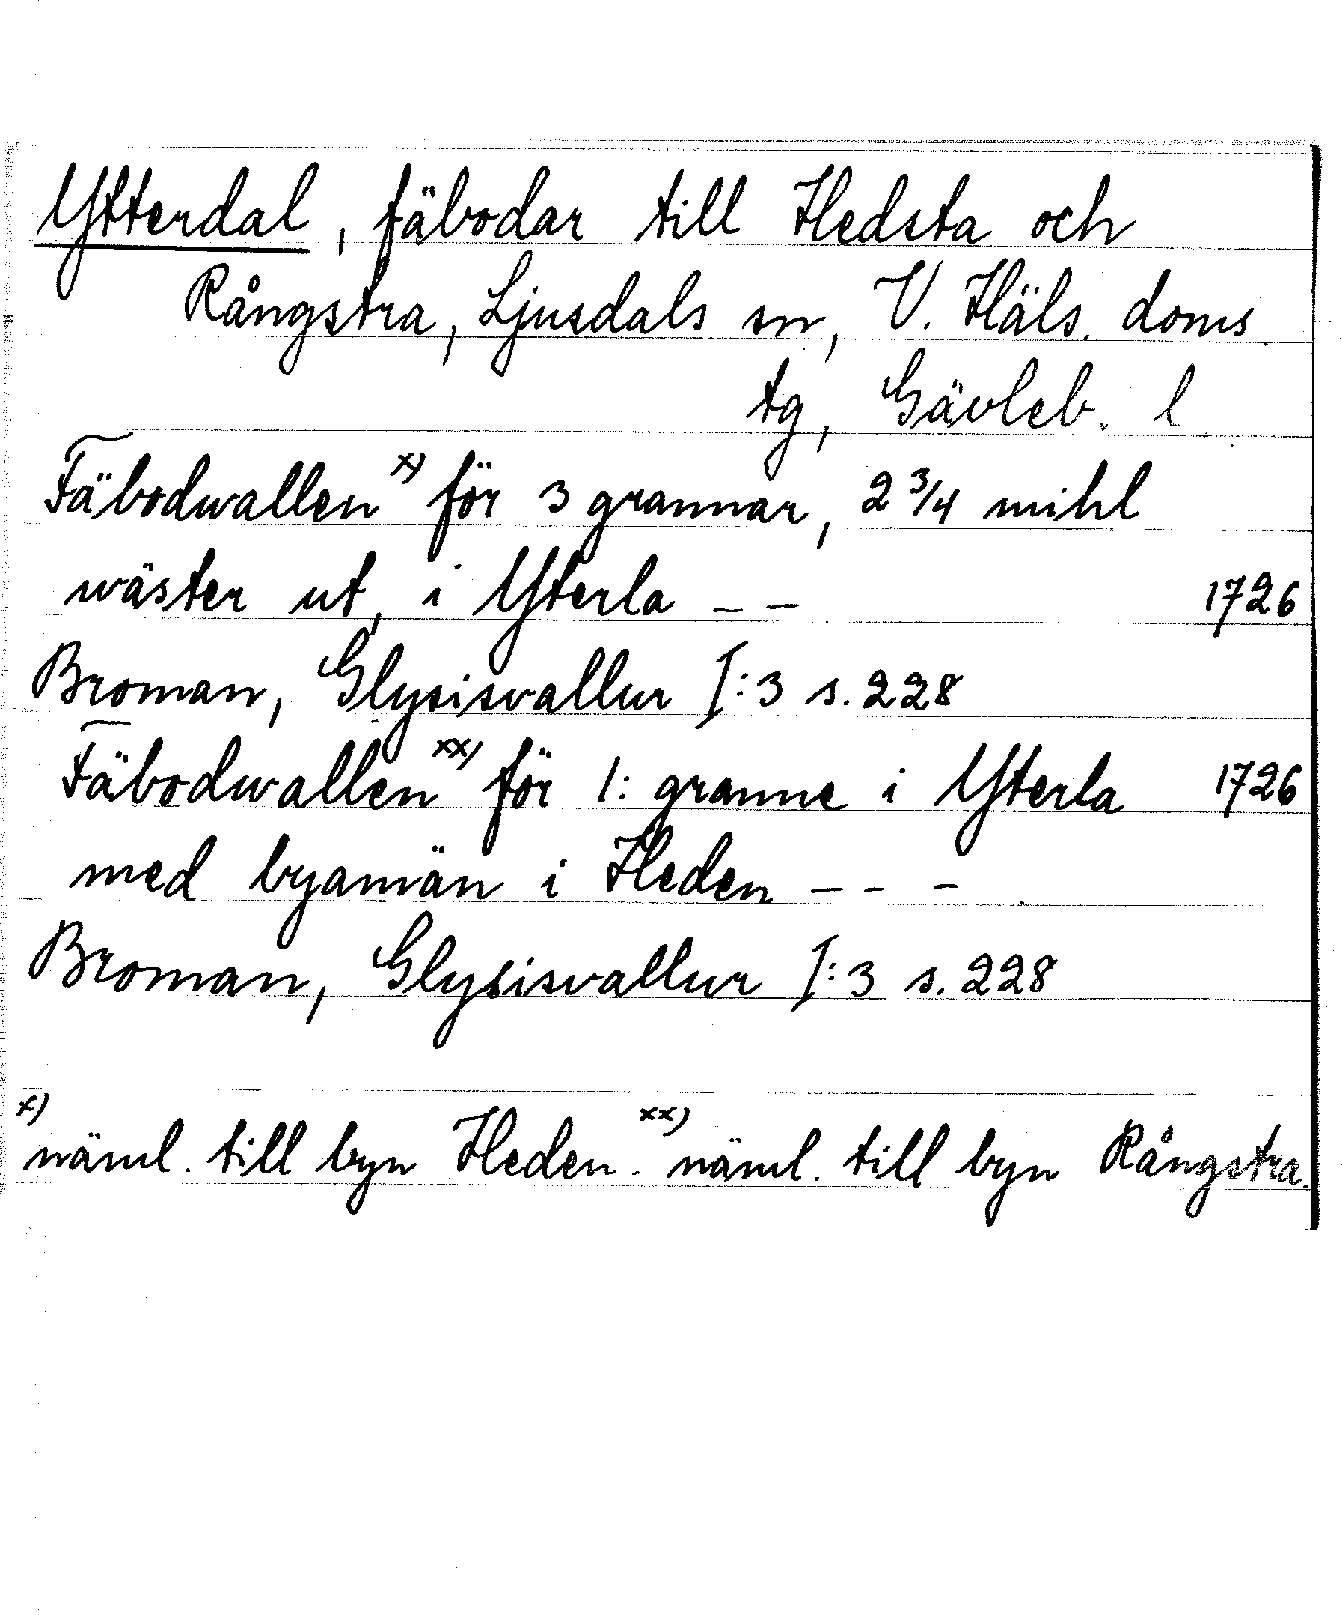 Ytterdal, fäbodar till Hedsta och
Rångstra, Ljusdals sn, V. Häls. doms
tg, Gävleb. l
Fäbodwallen x) för 3 grannar, 2 3/4 mihl
wäster ut, i Yterla – – 1726
Broman, Glysisvallur I:3 s. 228
Fäbodwallen xx) för 1: granne i Yterla 1726
med byamän i Heden – – –
Broman, Glysisvallur I:3 s. 228
x) näml. till byn Heden. xx) näml. till byn Rångstra.